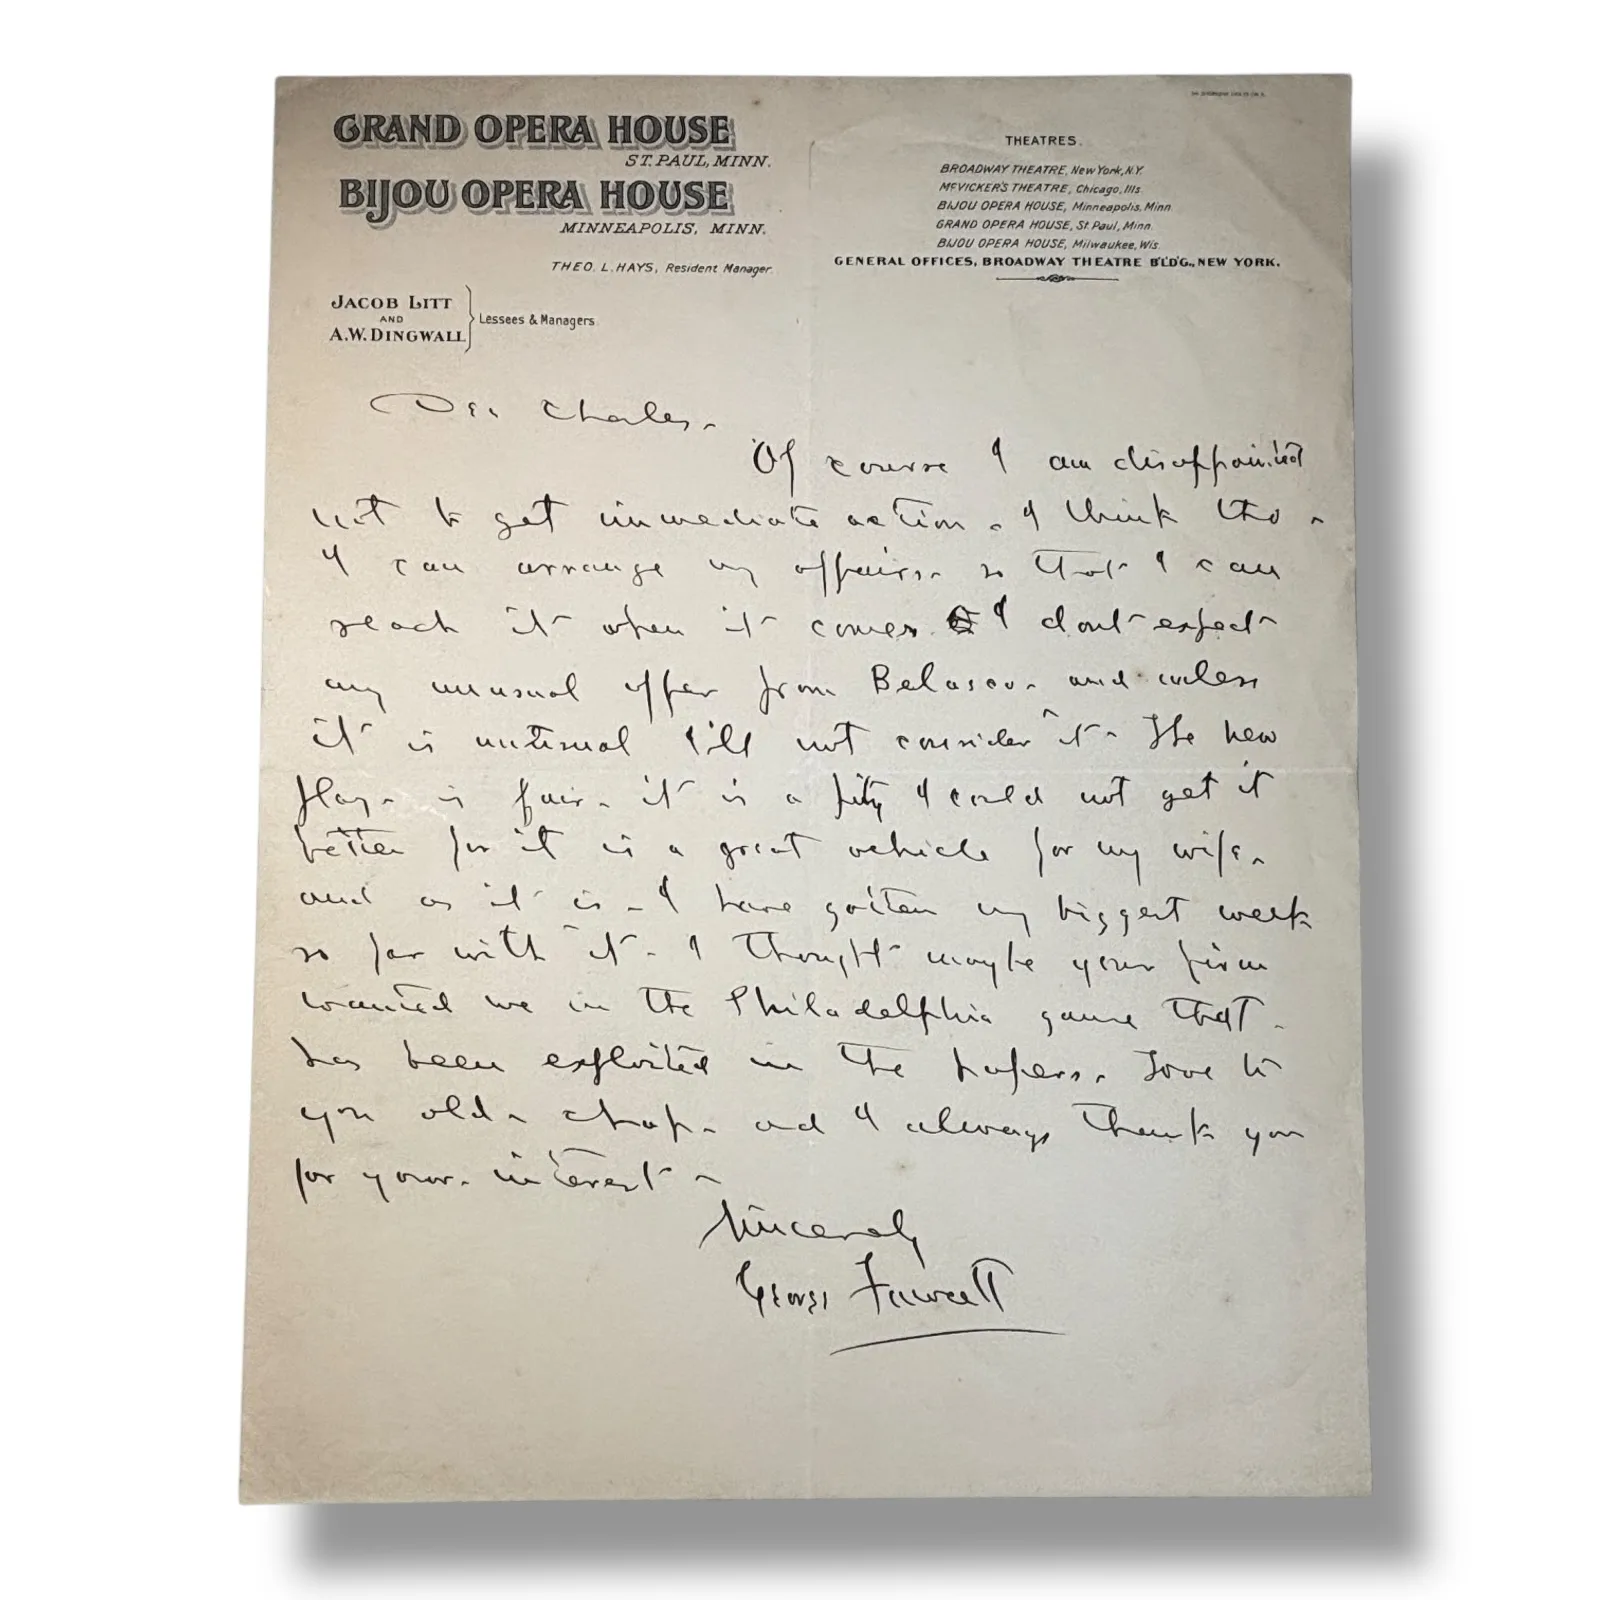 GRAND OPERA HOUSE
ST. PAUL, MINN.
BIJOU OPERA HOUSE
MINNEAPOLIS, MINN.
THEO. L. HAYS, Resident Manager.
JACOB LITT
AND
A.W. DINGWALL
Lessees & Managers.
THEATRES.
BROADWAY THEATRE, New York, N.Y.
McVICKER'S THEATRE, Chicago, Ills.
BIJOU OPERA HOUSE, Minneapolis, Minn.
GRAND OPERA HOUSE, St. Paul, Minn.
BIJOU OPERA HOUSE, Milwaukee, Wis.
GENERAL OFFICES, BROADWAY THEATRE B'L'D'G., NEW YORK.
Dear Charles -
Of course I am disappointed
not to get immediate action - I think tho -
I can arrange my affairs - so that I can
reach it when it comes I dont expect
any unusual offer from Belasco - and unless
it is unusual I'll not consider it - The new
play - is fair - it is a pity I could not get it
better for it is a great vehicle for my wife -
and as it is - I have gotten my biggest week
so far with it - I thought maybe your firm
wanted me in the Philadelphia game that -
has been exploited in the papers. Love to
you old - chap - and I always thank you
for your - interest -
Sincerely
George Fawcett